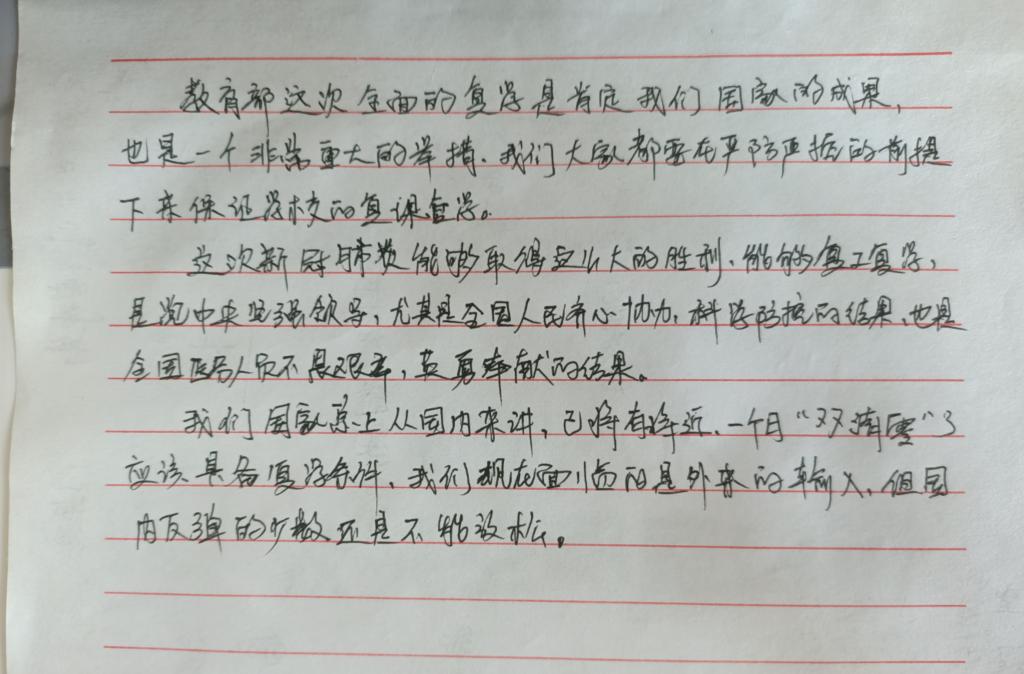 教育部这次全面的复学是肯定我们国家的成果,
也是一个非常重大的举措、我们大家都要在严防严控的前提
下来保证学校的复课复学。
这次新冠肺炎能够取得这么大的胜利、能够复工复学,
是党中央坚强领导,尤其是全国人民齐心协力,科学防控的结果、也是
全国医务人员不畏艰辛,英勇奉献的结果。
我们国家总上从国内来讲,已将有将近、一个月“双清零”了
应该具备复学条件、我们现在面临的是外来的输入、但国
内反弹的 还是不能放松。